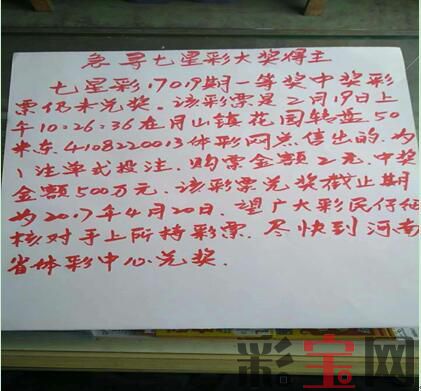 急寻七星彩大奖得主
七星彩17019期一等奖中奖彩
票仍未兑奖。该彩票是2月19日上
午10:26:36在月山镇花园转盘50
米东4108220013体彩网点售出的,为
1注单式投注,购票金额2元,中奖
金额500万元,该彩票兑奖截止期
为2017年4月20日,望广大彩民仔细
核对手上所持彩票,尽快到河南
省体彩中心兑奖.
彩宝网